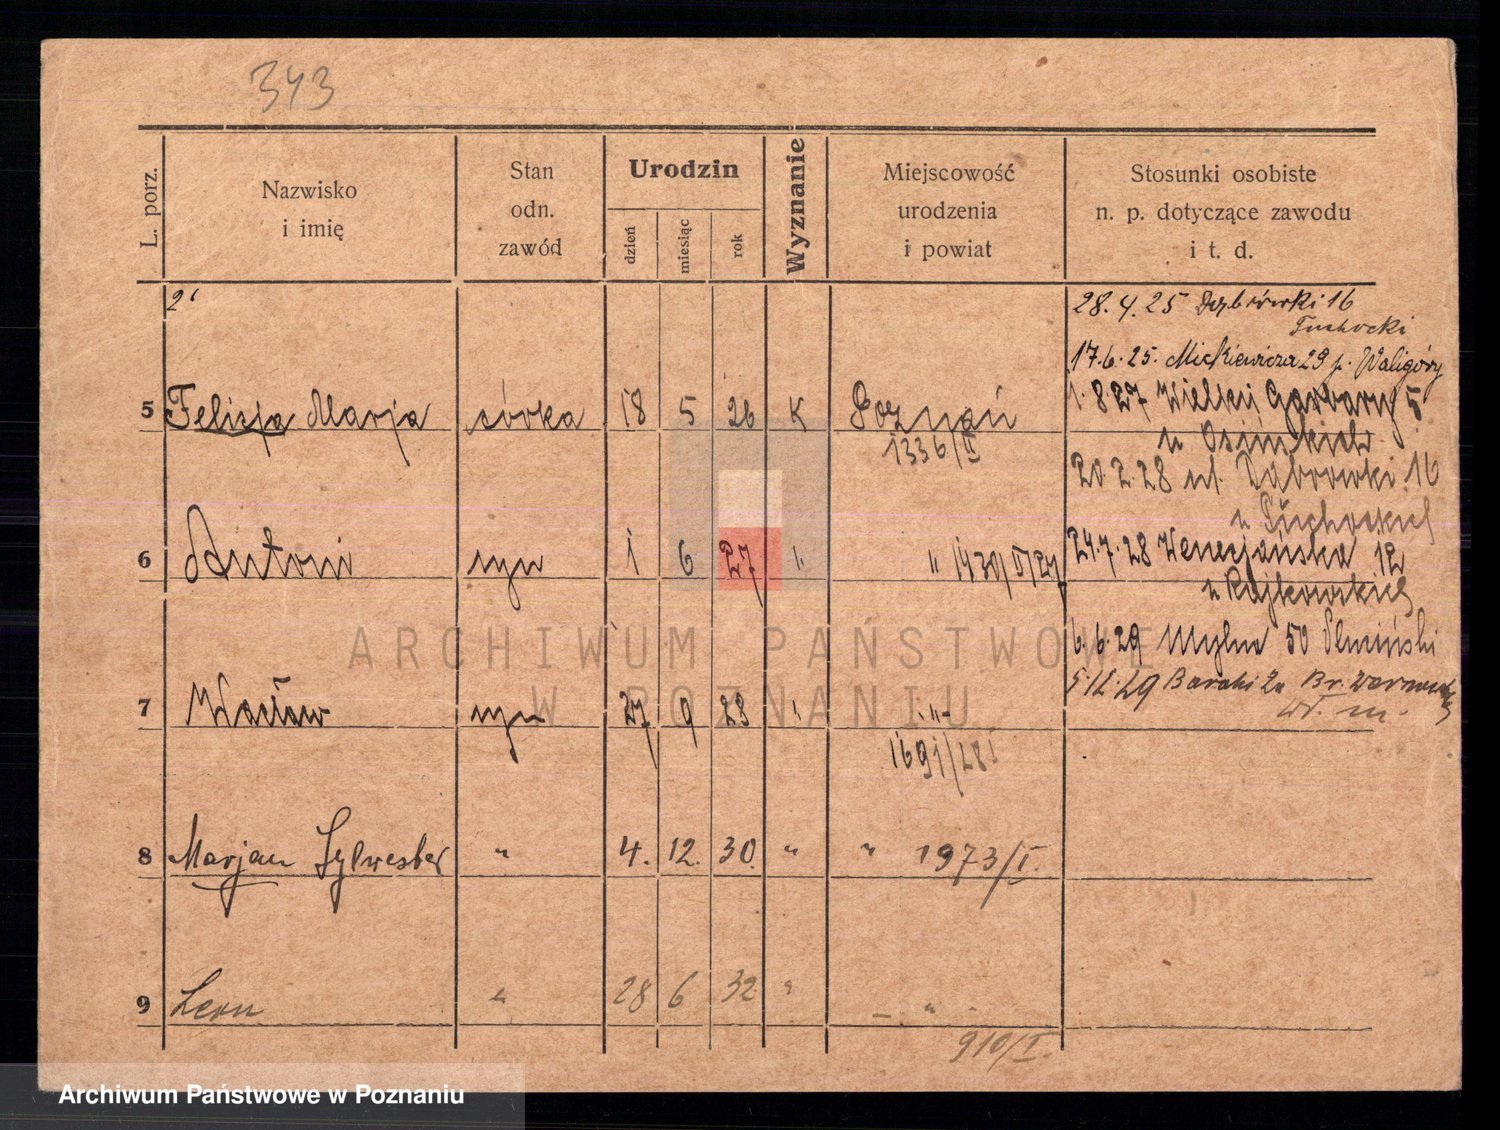 343
L. porz.
Nazwisko
i imię
Stan
odn.
zawód
Urodzin
dzień
miesiąc
rok
Wyznanie
Miejscowość
urodzenia
i powiat
Stosunki osobiste
n. p. dotyczące zawodu
i t. d.
28. 4. 25
16
17. 6. 25. Mickiewicza 29 p. Waligóry
5 Felicja Marja córka 18 5 26 K Poznań
1336/II
1. 8. 27 Wielkie Garbary 5
u
20. 2. 28 ul. Dąbrowki 16
u
6 Antoni syn 1 6 27 "
24. 7. 28 Wenecjańska 12
u Rajkowskich
6. 6. 29 Mylna 50
5. 12. 29 Baraki
7 Wacław syn 27 9 28 " "
1691/28
8 Marjan Sylwester " 4. 12. 30. " " 1973/I.
9 Leon " 28 6 32 " "
910/I.
ARCHIWUM PAŃSTWOWE
W POZNANIU
Archiwum Państwowe w Poznaniu